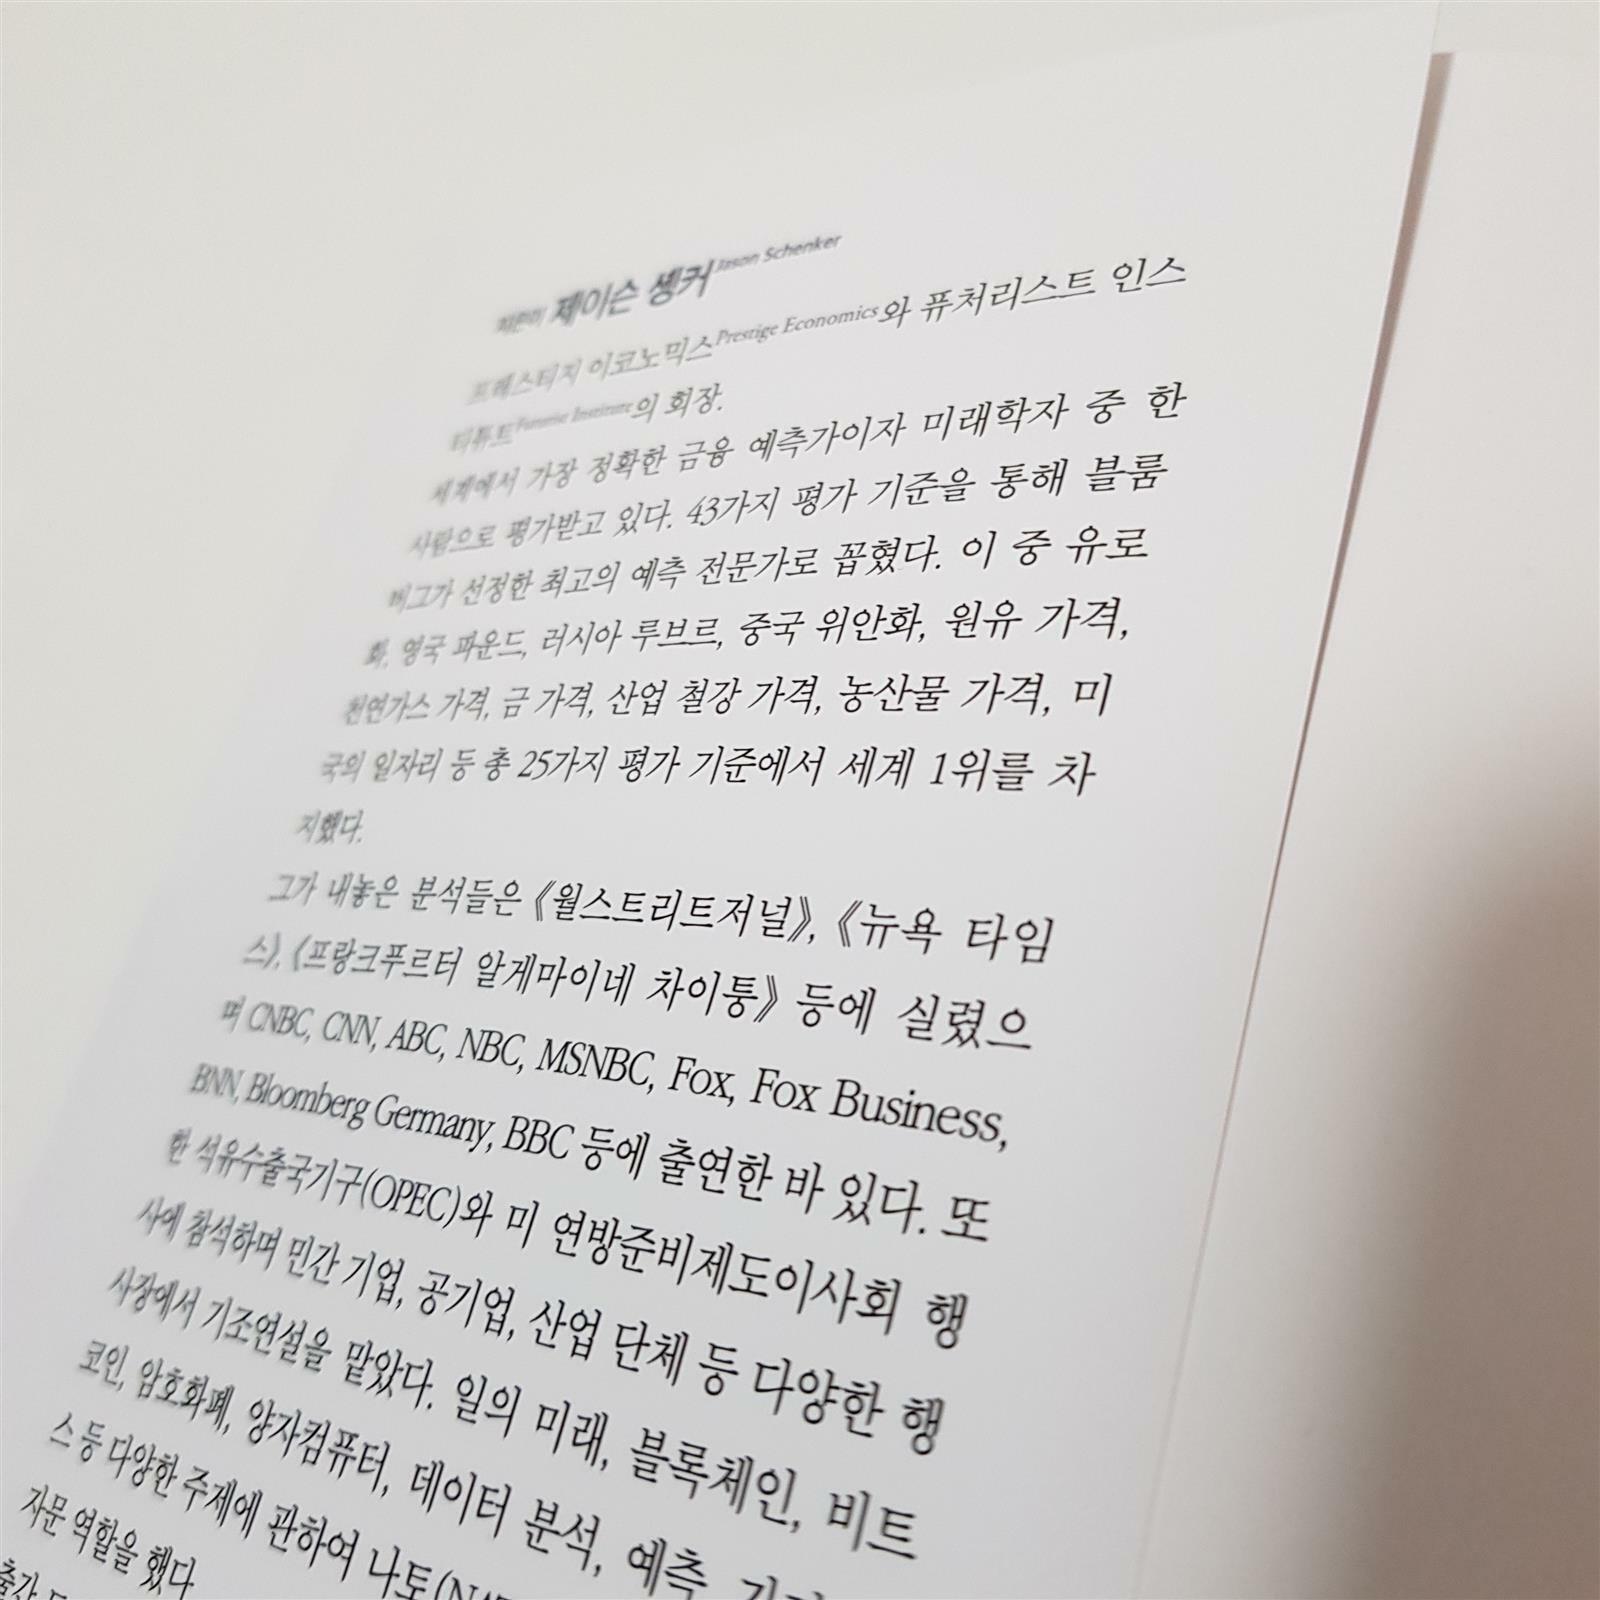 지은이 제이슨 솅커 Jason Schenker
프레스티지 이코노믹스Prestige Economics와 퓨처리스트 인스
티튜트Futurist Institute의 회장.
세계에서 가장 정확한 금융 예측가이자 미래학자 중 한
사람으로 평가받고 있다. 43가지 평가 기준을 통해 블룸
버그가 선정한 최고의 예측 전문가로 꼽혔다. 이 중 유로
화, 영국 파운드, 러시아 루브르, 중국 위안화, 원유 가격,
천연가스 가격, 금 가격, 산업 철강 가격, 농산물 가격, 미
국의 일자리 등 총 25가지 평가 기준에서 세계 1위를 차
지했다.
그가 내놓은 분석들은 《월스트리트저널》, 《뉴욕 타임
스》, 《프랑크푸르터 알게마이네 차이퉁》 등에 실렸으
며 CNBC, CNN, ABC, NBC, MSNBC, Fox, Fox Business,
BNN, Bloomberg Germany, BBC 등에 출연한 바 있다. 또
한 석유수출국기구(OPEC)와 미 연방준비제도이사회 행
사에 참석하며 민간 기업, 공기업, 산업 단체 등 다양한 행
사장에서 기조연설을 맡았다. 일의 미래, 블록체인, 비트
코인, 암호화폐, 양자컴퓨터, 데이터 분석, 예측
스 등 다양한 주제에 관하여 나토
자문 역할을 했다